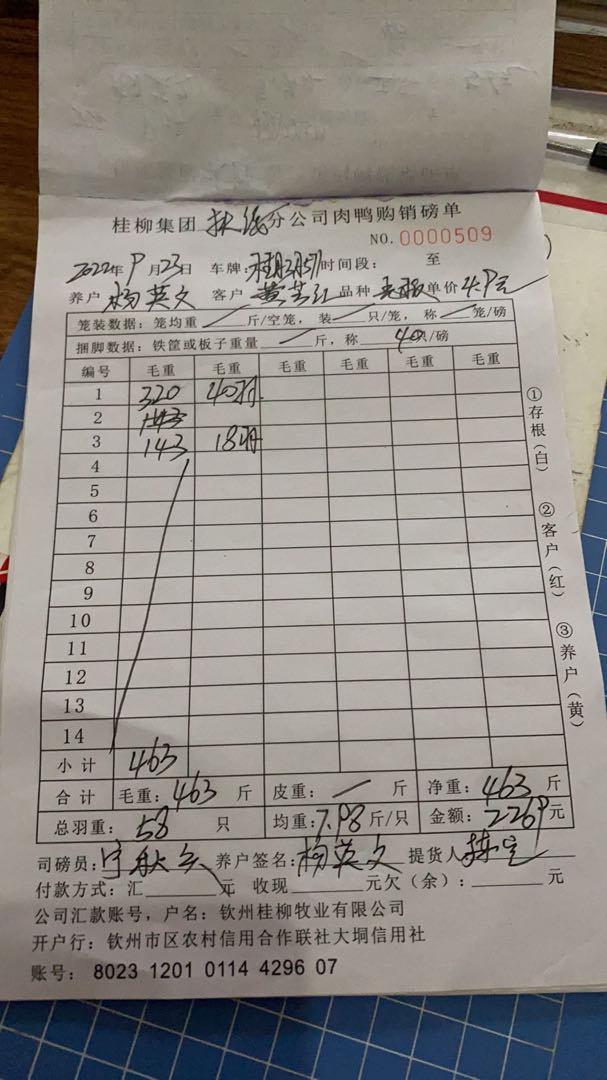 桂柳集团 分公司肉鸭购销磅单
NO.0000509
2022年9月23日 车牌: 时间段: 至
养户 杨英文 客户 黄 品种 毛 单价 4.9元
笼装数据:笼均重 斤/空笼,装 只/笼,称 笼/磅
捆脚数据:铁筐或板子重量 斤,称 40只/磅
编号 毛重 毛重 毛重 毛重 毛重
1 320 40羽
2
3 143 18羽
4
5
6
7
8
9
10
11
12
13
14
小计 463
合计 毛重:463 斤 皮重: 斤 净重:463 斤
总羽重:58 只 均重:7.98斤/只 金额:2269元
司磅员: 养户签名:杨英文 提货人
付款方式:汇 元 收现 元欠(余): 元
公司汇款账号,户名:钦州桂柳牧业有限公司
开户行:钦州市区农村信用合作联社大垌信用社
账号: 8023 1201 0114 4296 07
①存根(白)
②客户(红)
③养户(黄)